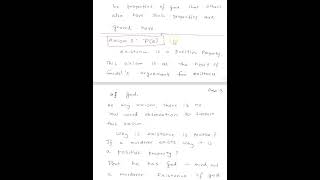 be properties of god that others
also have such properties are
ground here.
Axiom 5: P(E)
Existence is a positive property.
This axiom is at the heart of
Godel's argument for existence
of god.
As any axiom, there is no
real world observation to
this axiom.
Why is existence is positive?
If a murderer exists why it is
a positive property?
But he has God in mind, not
a murderer. Existence of god